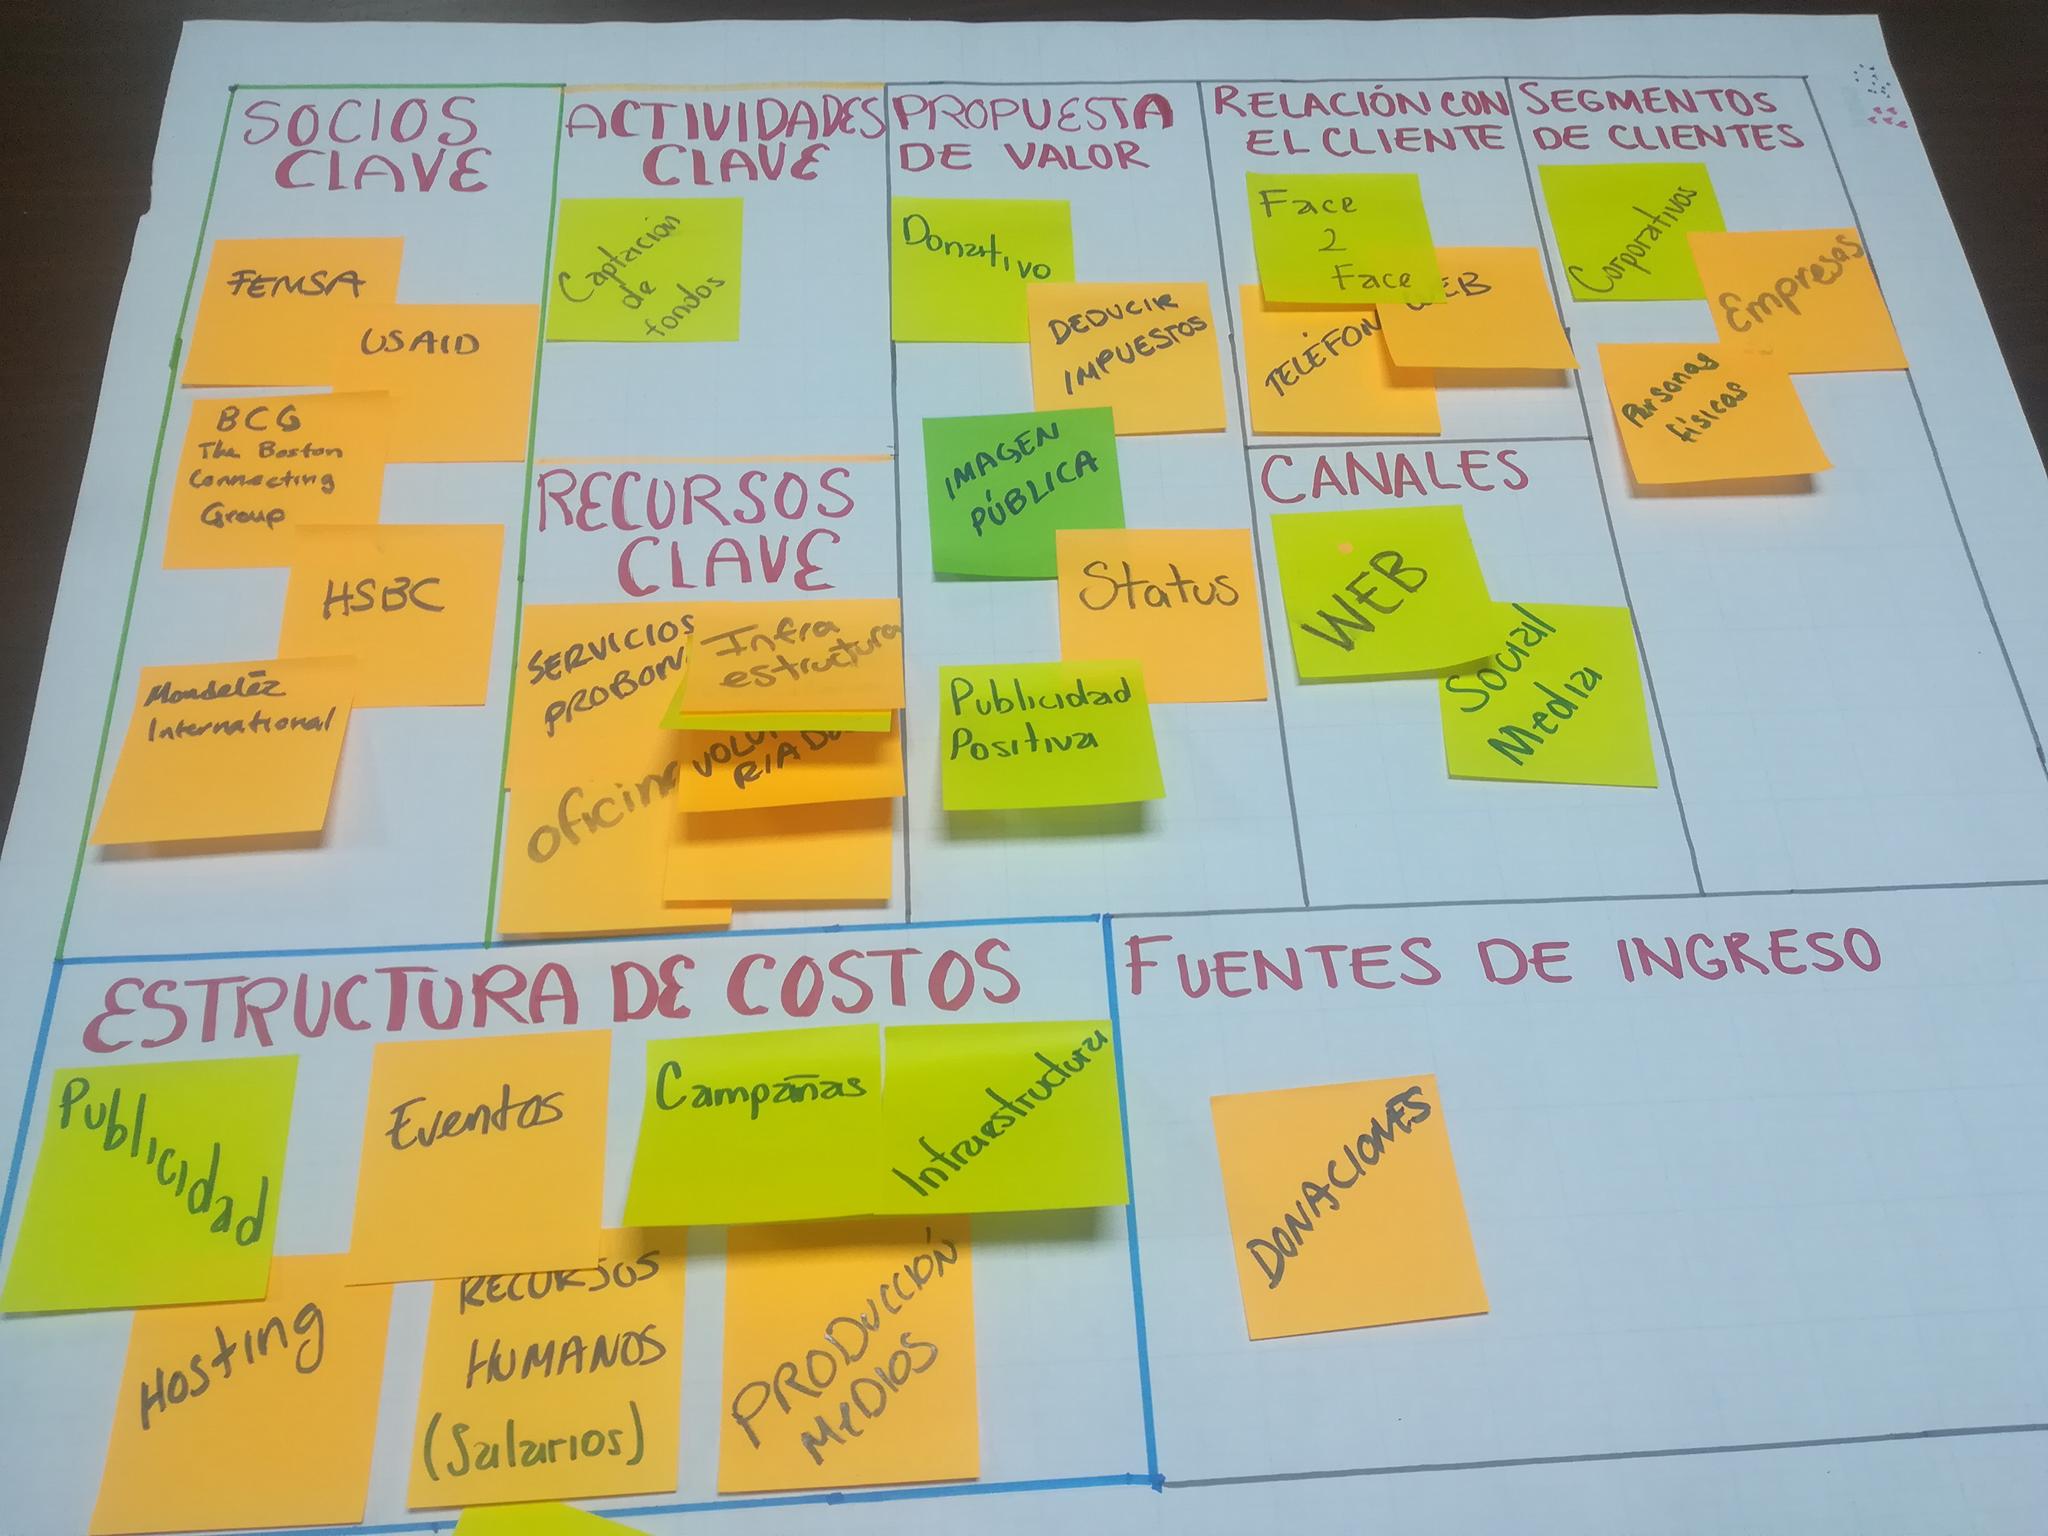 SOCIOS
CLAVE
FEMSA
USAID
BCG
The Boston
Connecting
Group
HSBC
Mondelēz
International
ACTIVIDADES
CLAVE
Captación
de
fondos
RECURSOS
CLAVE
SERVICIOS
PROBON
Infra
estructura
VOLU
RIADO
oficina
PROPUESTA
DE VALOR
Donativo
DEDUCIR
IMPUESTOS
IMAGEN
PÚBLICA
Status
Publicidad
Positiva
RELACIÓN CON
EL CLIENTE
Face
2
Face
WEB
TELÉFON
CANALES
WEB
Social
Media
SEGMENTOS
DE CLIENTES
Corporativos
Empresas
Personas
físicas
ESTRUCTURA DE COSTOS
Publicidad
Eventos
Campañas
Infraestructura
Hosting
RECURSOS
HUMANOS
(Salarios)
PRODUCCIÓN
MEDIOS
FUENTES DE INGRESO
DONACIONES